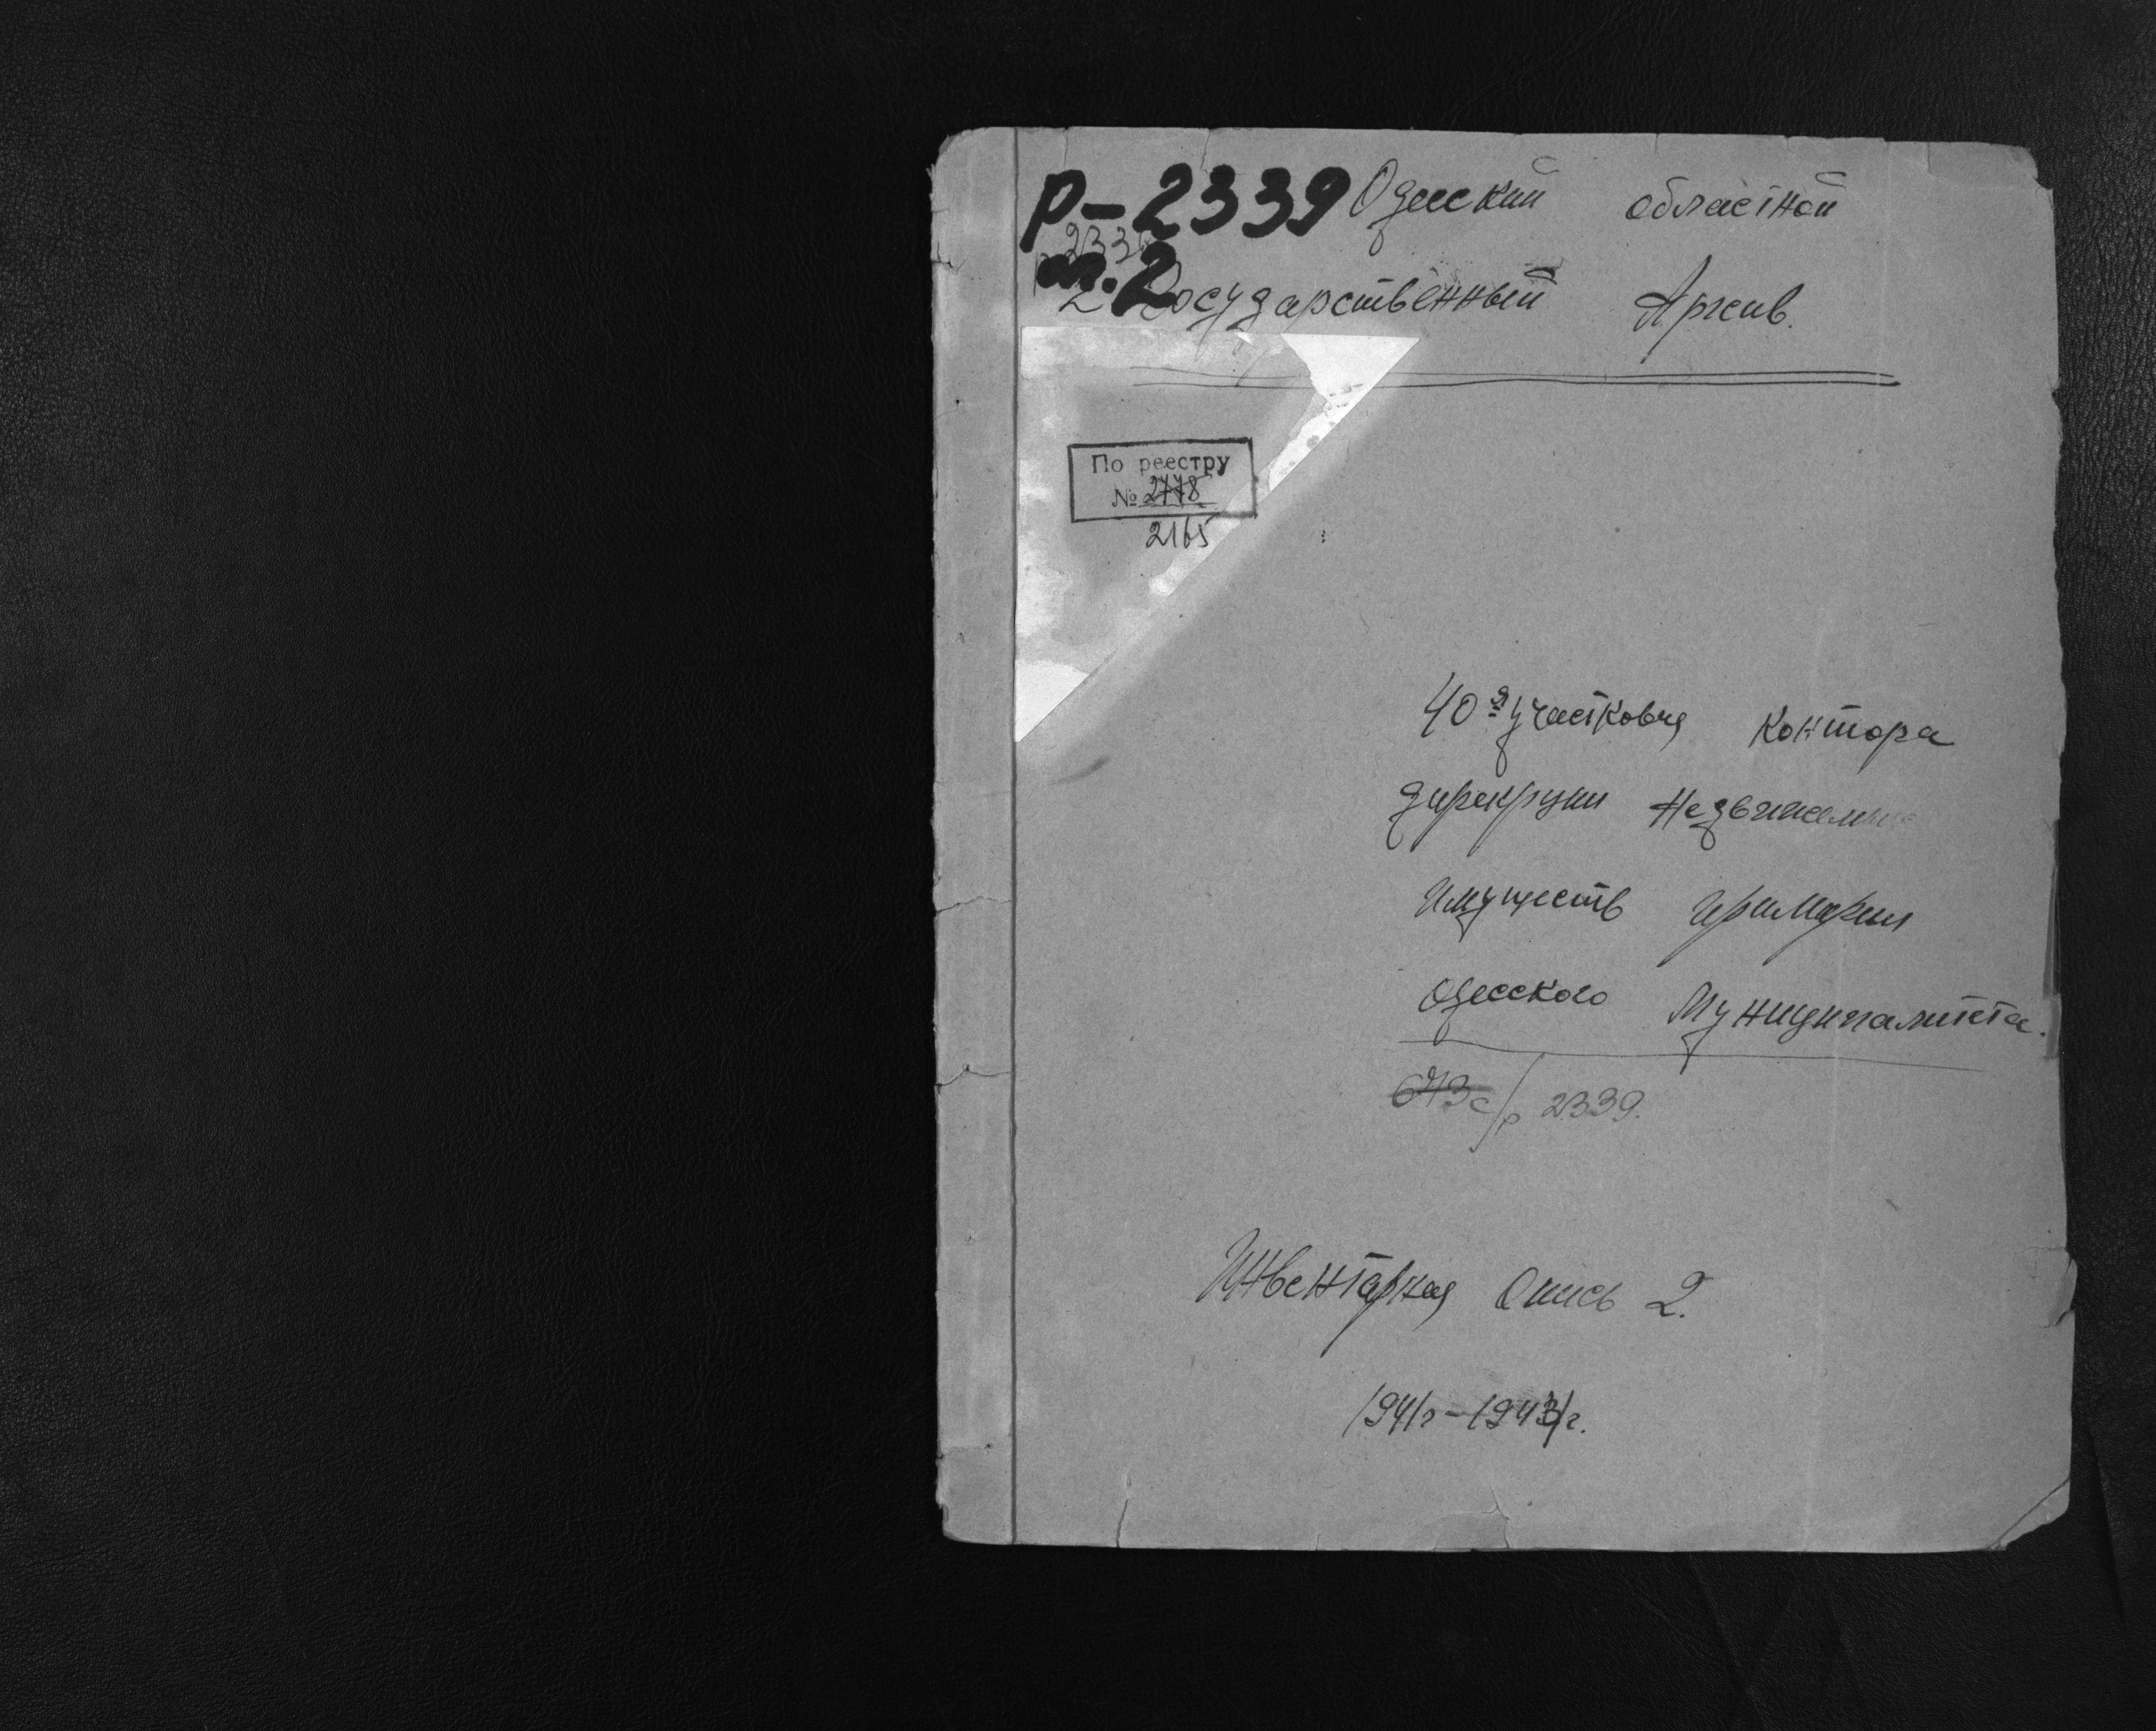 Р-2339 Одесский областной
2339
2 Государственный Архив.
По реестру
№ 2778
2165
40-я участковая контора
дирекции Недвижимых
Имуществ Примарии
Одесского Муниципалитета.
673 с/р 2339.
Инвентарная Опись 2.
1941г-1943г.